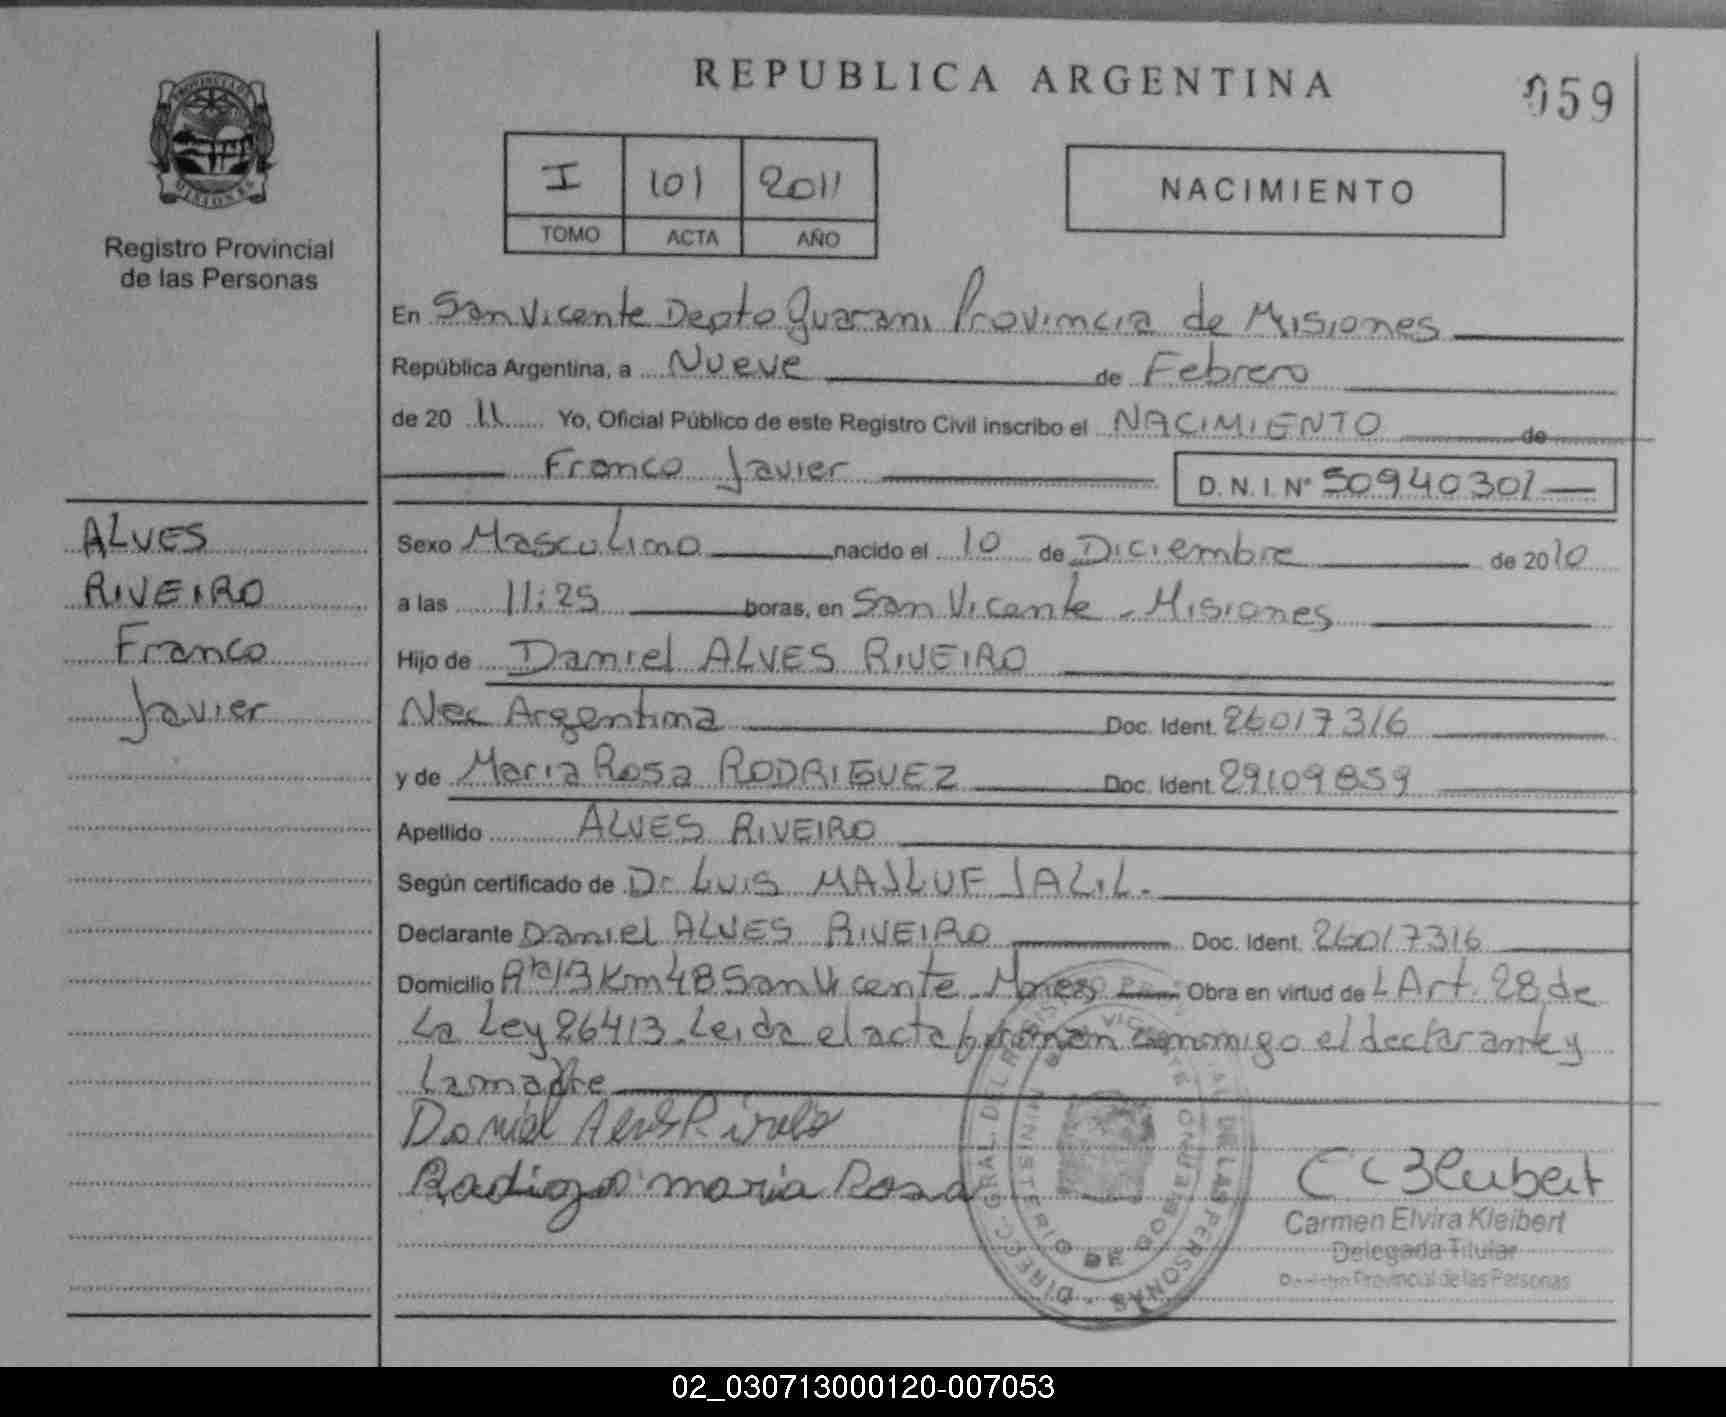 REPUBLICA ARGENTINA
059
PROVINCIA DE
MISIONES
Registro Provincial
de las Personas
I 101 2011
TOMO ACTA AÑO
NACIMIENTO
En San Vicente Depto Guarani Provincia de Misiones
República Argentina, a Nueve de Febrero
de 20 11 Yo, Oficial Público de este Registro Civil inscribo el NACIMIENTO de
Franco Javier D.N.I. N° 50940301
ALVES
RIVEIRO
Franco
Javier
Sexo Masculino nacido el 10 de Diciembre de 2010
a las 11:25 horas, en San Vicente - Misiones
Hijo de Daniel ALVES RIVEIRO
Nac Argentina Doc. Ident. 26017316
y de Maria Rosa RODRIGUEZ Doc. Ident. 29109859
Apellido ALVES RIVEIRO
Según certificado de Dr Luis MAJLUF JALIL.
Declarante Daniel ALVES RIVEIRO Doc. Ident. 26017316
Domicilio Rta 13 Km 48 San Vicente Obra en virtud de L Art. 28 de
La Ley 26413. Leida el acta firman conmigo el declarante y
La madre
Daniel
maria Rosa
Carmen Elvira Kleibert
Delegada Titular
Registro Provincial de las Personas
DIREC. GRAL. DEL REGISTRO DE LAS PERSONAS
MINISTERIO DE GOBIERNO
02_030713000120-007053